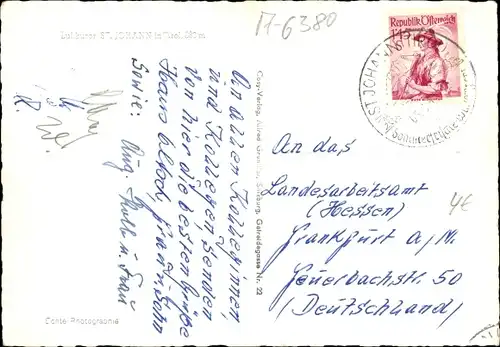 A-6380
Luftkurort ST. JOHANN in Tirol, 660 m
Republik Österreich
1.45
ST. JOHANN
An allen Kolleginnen
und Kollegen senden
von hier die besten Grüße
Hans Alfred, Frau u. Sohn
Sowie: Aug. u. Frau
Echte Photographie
Cosy-Verlag, Alfred Gründler, Salzburg, Getreidegasse Nr. 22
An das
Landesarbeitsamt
(Hessen)
Frankfurt a/M.
Feuerbachstr. 50
(Deutschland)
4€